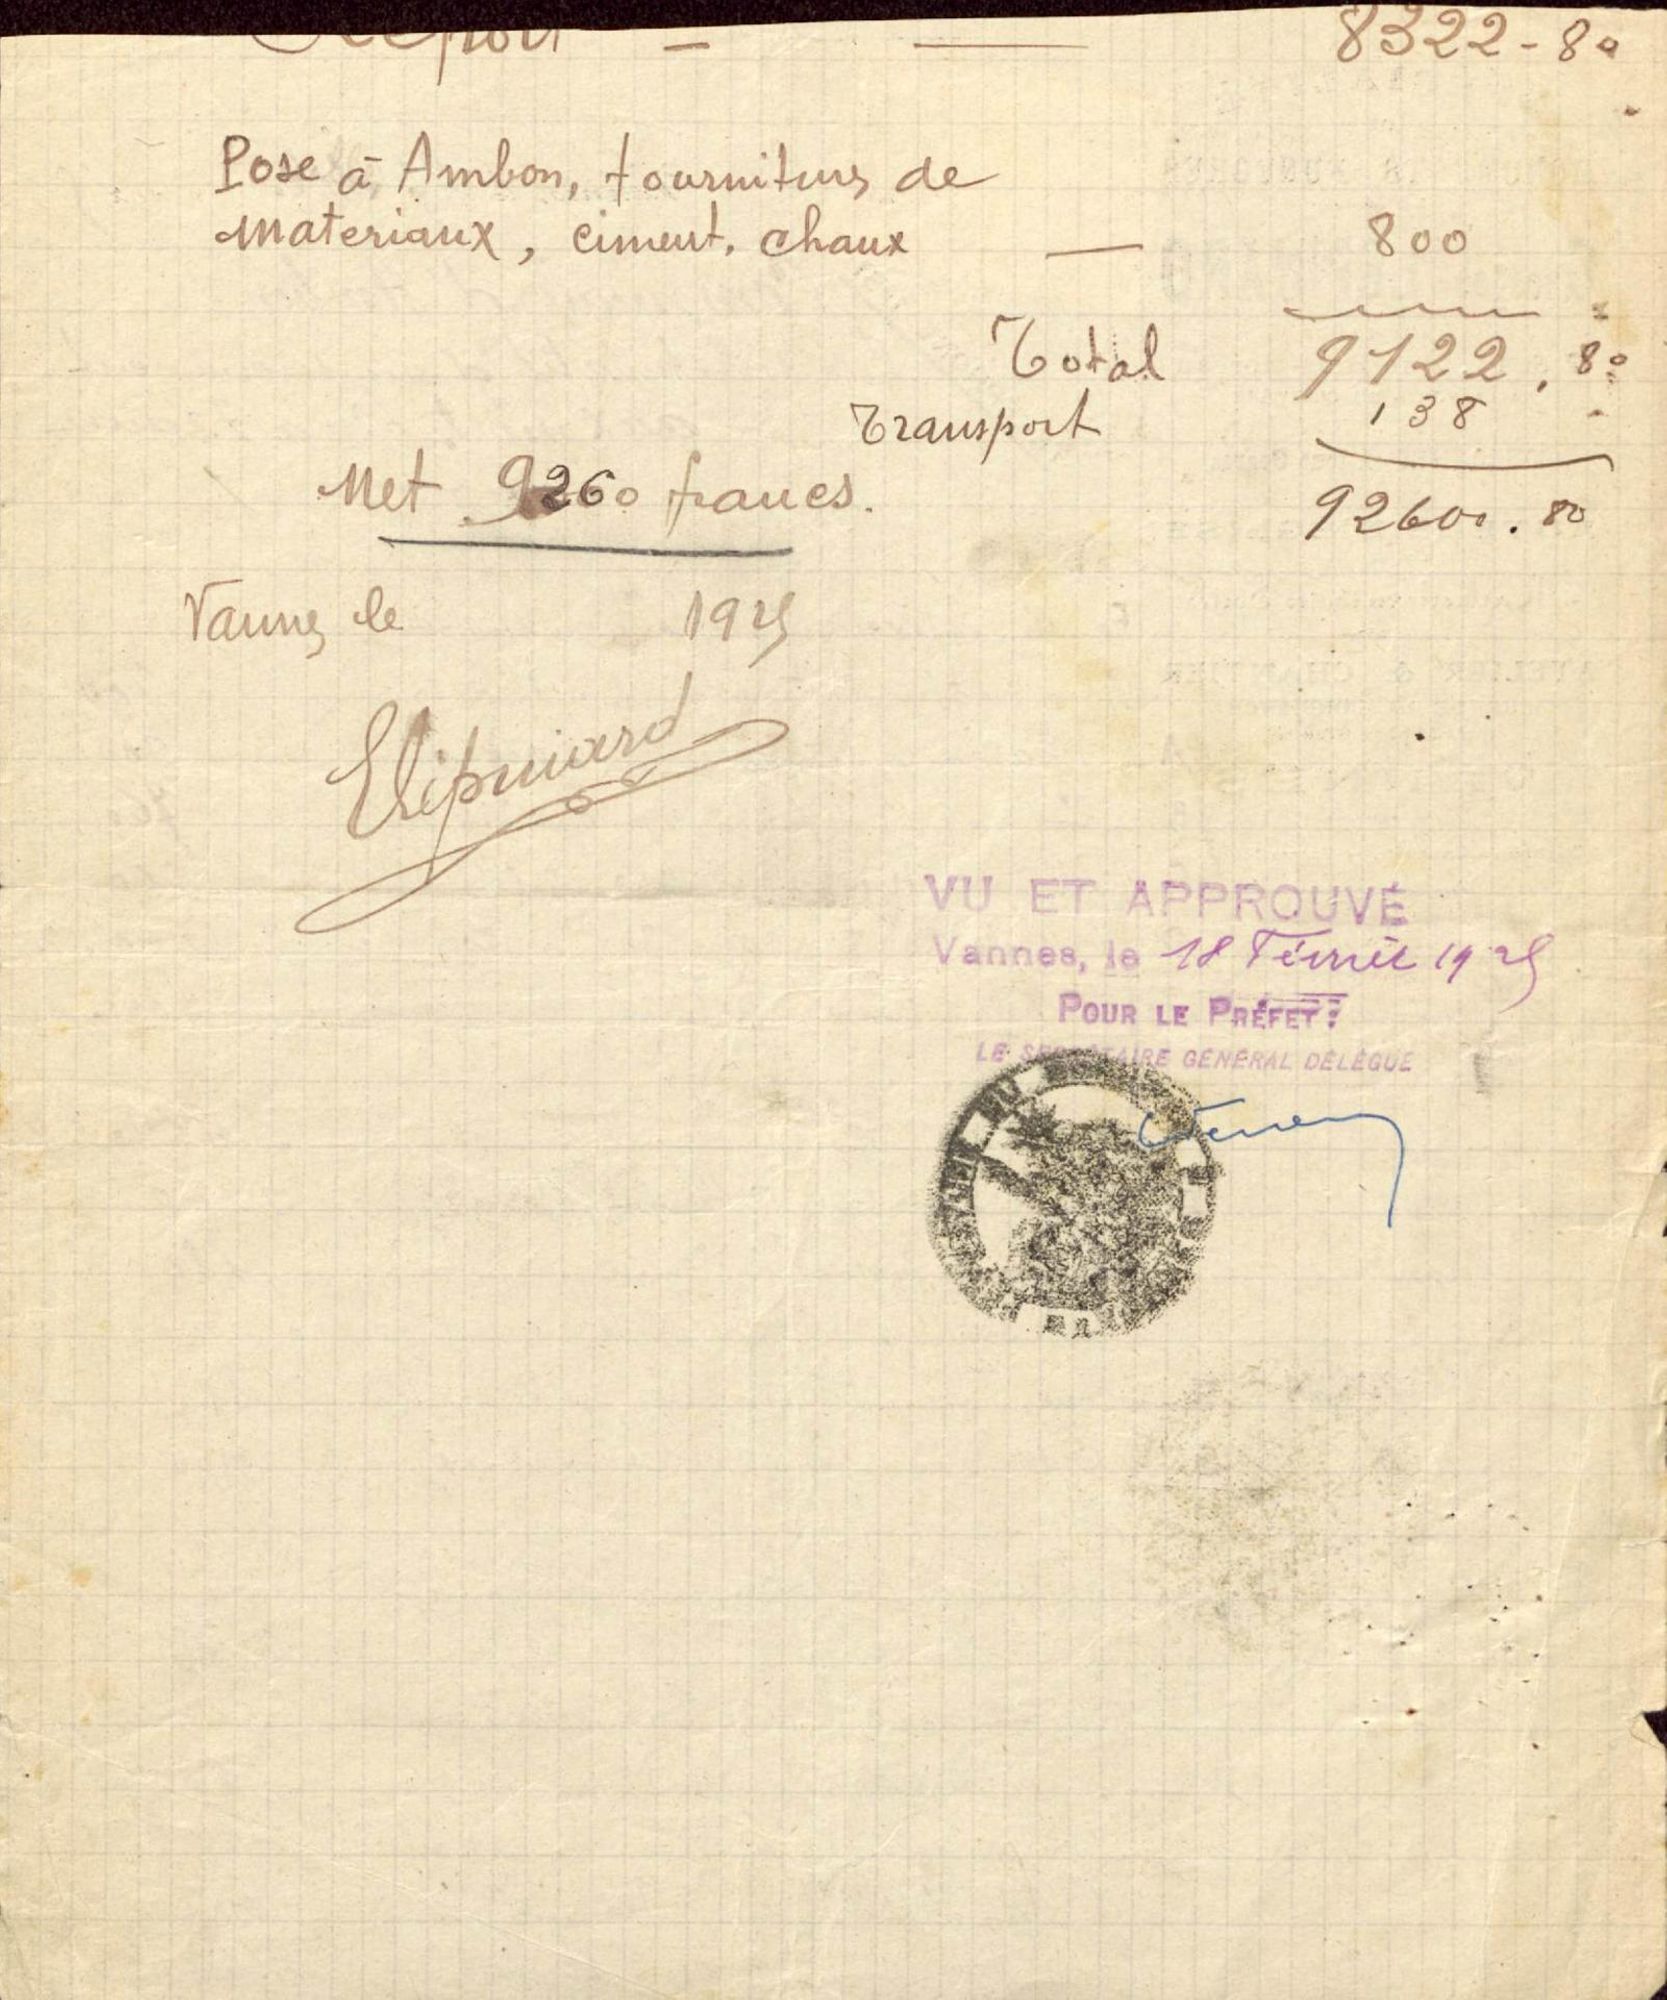 Report — — 8322-80
Pose à Ambon, fournitures de
materiaux, ciment, chaux — 800
Total 9122.80
Transport 138
Net 9260 francs. 9260.80
Vannes le 1925
VU ET APPROUVÉ
Vannes, le 18 Février 1925
POUR LE PRÉFET:
LE SECRÉTAIRE GÉNÉRAL DÉLÉGUÉ